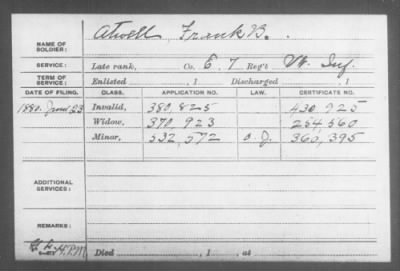 NAME OF SOLDIER: Atwell, Frank B.
SERVICE: Late rank, Co. E, 7 Reg't Vt. Inf.
TERM OF SERVICE: Enlisted , 1 Discharged , 1
DATE OF FILING. CLASS. APPLICATION NO. LAW. CERTIFICATE NO.
1880. 23 Invalid, 380,825 430,925
Widow, 370,923 254,560
Minor, 532,572 360,395
ADDITIONAL SERVICES:
REMARKS:
Died , 1 , at